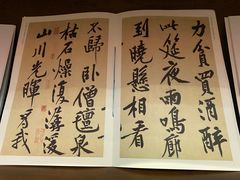 力貧買酒醉
此筵夜雨鳴廊
到曉懸相看
不歸臥僧氊泉
枯石燥復潺湲
山川光暉為我